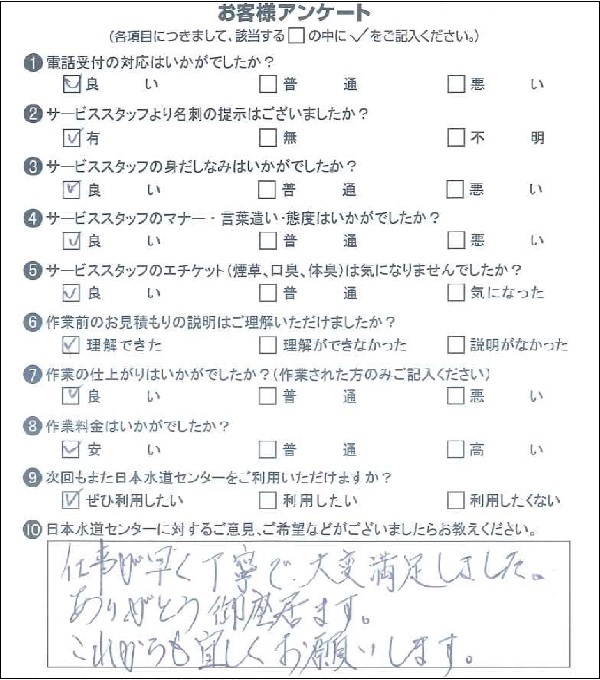 お客様アンケート
(各項目につきまして、該当する□の中に✓をご記入ください。)
❶電話受付の対応はいかがでしたか?
☑良い □普通 □悪い
❷サービススタッフより名刺の提示はございましたか?
☑有 □無 □不明
❸サービススタッフの身だしなみはいかがでしたか?
☑良い □普通 □悪い
❹サービススタッフのマナー・言葉遣い・態度はいかがでしたか?
☑良い □普通 □悪い
❺サービススタッフのエチケット(煙草、口臭、体臭)は気になりませんでしたか?
☑良い □普通 □気になった
❻作業前のお見積もりの説明はご理解いただけましたか?
☑理解できた □理解ができなかった □説明がなかった
❼作業の仕上がりはいかがでしたか?(作業された方のみご記入ください)
☑良い □普通 □悪い
❽作業料金はいかがでしたか?
☑安い □普通 □高い
❾次回もまた日本水道センターをご利用いただけますか?
☑ぜひ利用したい □利用したい □利用したくない
❿日本水道センターに対するご意見、ご希望などがございましたらお教えください。
仕事が早く丁寧で、大変満足しました。
ありがとう御座居ます。
これからも宜しくお願いします。